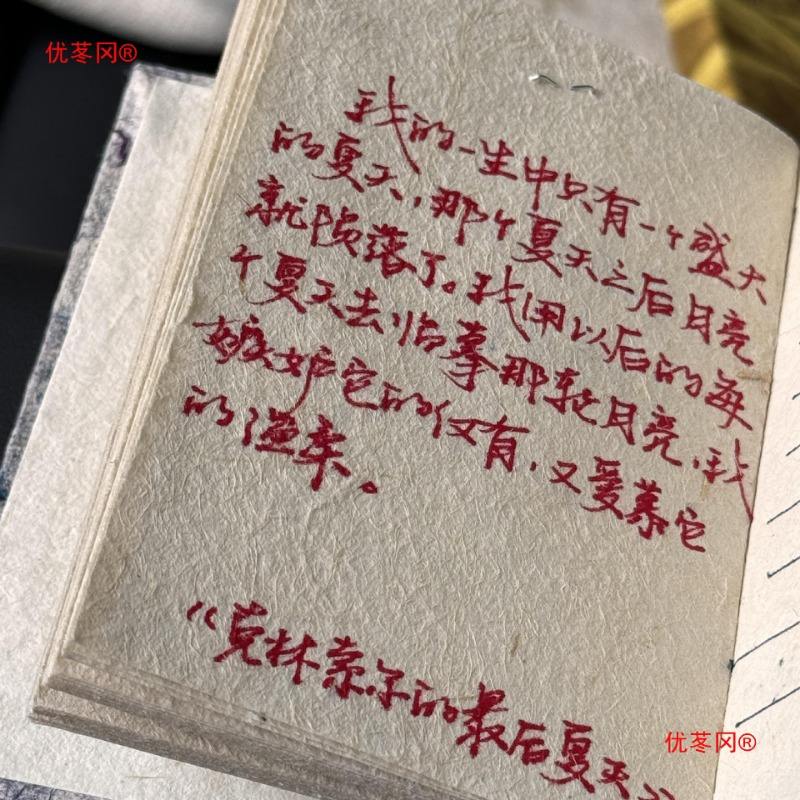 优苳冈®
我的一生中只有一个盛大
的夏天,那个夏天之后月亮
就陨落了。我用以后的每
个夏天去临摹那轮月亮,我
嫉妒它的仅有,又爱慕它
的
《克林索尔的最后夏天》
优苳冈®